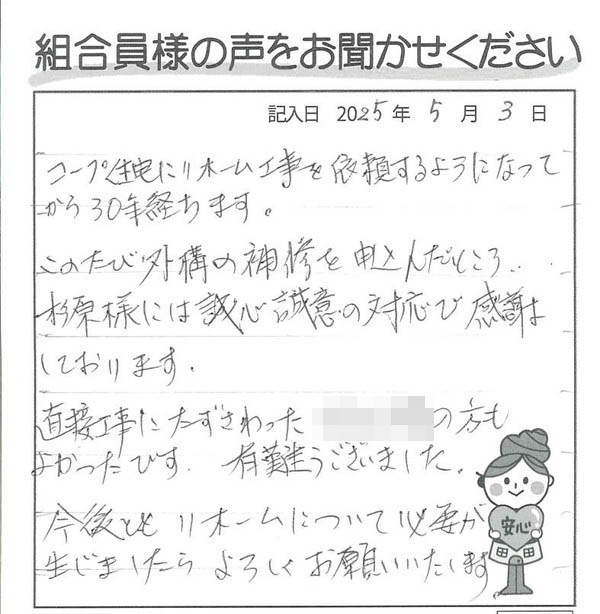 組合員様の声をお聞かせください
記入日 2025年 5月 3日
コープ住宅にリホーム工事を依頼するようになって
から30年経ちます。
このたび外構の補修を申込んだところ、
杉原様には誠心誠意の対応で感謝
しております。
直接工事にたずさわった の方も
よかったです。有難うございました。
今後とも リホームについて必要が
生じましたら よろしく お願いいたします
安心